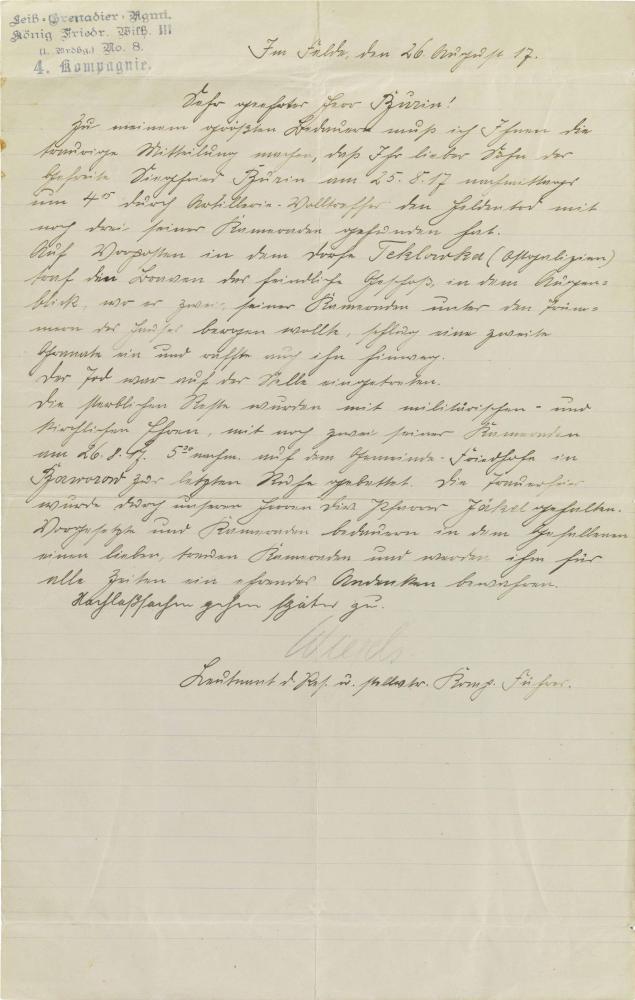 Leib-Grenadier-Rgmt.
König Friedr. Wilh. III
(1. Brdbg.) No. 8.
4. Kompagnie.
Im Felde, den 26. August 17.
Sehr geehrter Herr Burin!
Zu meinem größten Bedauern muß ich Ihnen die
traurige Mitteilung machen, daß Ihr lieber Sohn der
Gefreite Siegfried Burin am 25.8.17 nachmittags
um 4 durch Artillerie-Volltreffer den Heldentod mit
noch drei seiner Kameraden gefunden hat.
Auf Vorposten in dem Dorfe Teklowka (Ostgalizien)
traf den Braven das feindliche Geschoß, in dem Augen-
blick, wo er zwei seiner Kameraden unter den Trüm-
mern des Hauses bergen wollte, schlug eine zweite
Granate ein und raffte auch ihn hinweg.
Der Tod war auf der Stelle eingetreten.
Die sterblichen Reste wurden mit militärischen- und
kirchlichen Ehren, mit noch zwei seiner Kameraden
am 26.8.17. 5³⁰ nachm. auf dem Gemeinde-Friedhofe in
Borworow zur letzten Ruhe gebettet. Die Trauerfeier
wurde durch unseren Herrn Div. Pfarrer Jäkel gehalten.
Vorgesetzte und Kameraden bedauern in dem Gefallenen
einen lieben, treuen Kameraden und werden ihm für
alle Zeiten ein ehrendes Andenken bewahren.
Nachlaßsachen gehen später zu.
Leutnant d. Res. u. stellvtr. Komp. Führer.